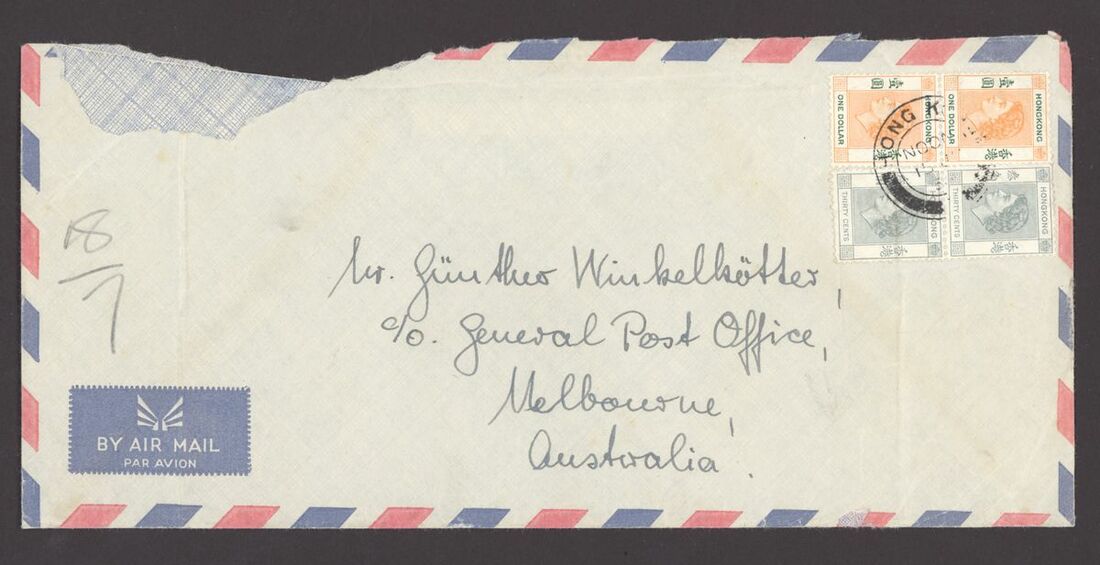 壹圓
ONE DOLLAR
HONGKONG
香港
壹圓
ONE DOLLAR
HONGKONG
香港
THIRTY CENTS
香港
THIRTY CENTS
HONGKONG
香港
HONG K
NOON
18
7
Mr. Günther Winkelkötter,
c/o. General Post Office,
Melbourne,
Australia.
BY AIR MAIL
PAR AVION